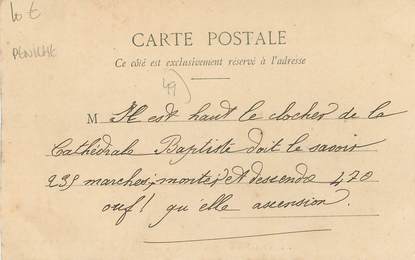 10 €
PENICHE
CARTE POSTALE
Ce côté est exclusivement réservé à l'adresse
49
M Il est haut le clocher de la
Cathédrale Baptiste doit le savoir
235 marches; monter et descendre 470
ouf! qu'elle ascension.